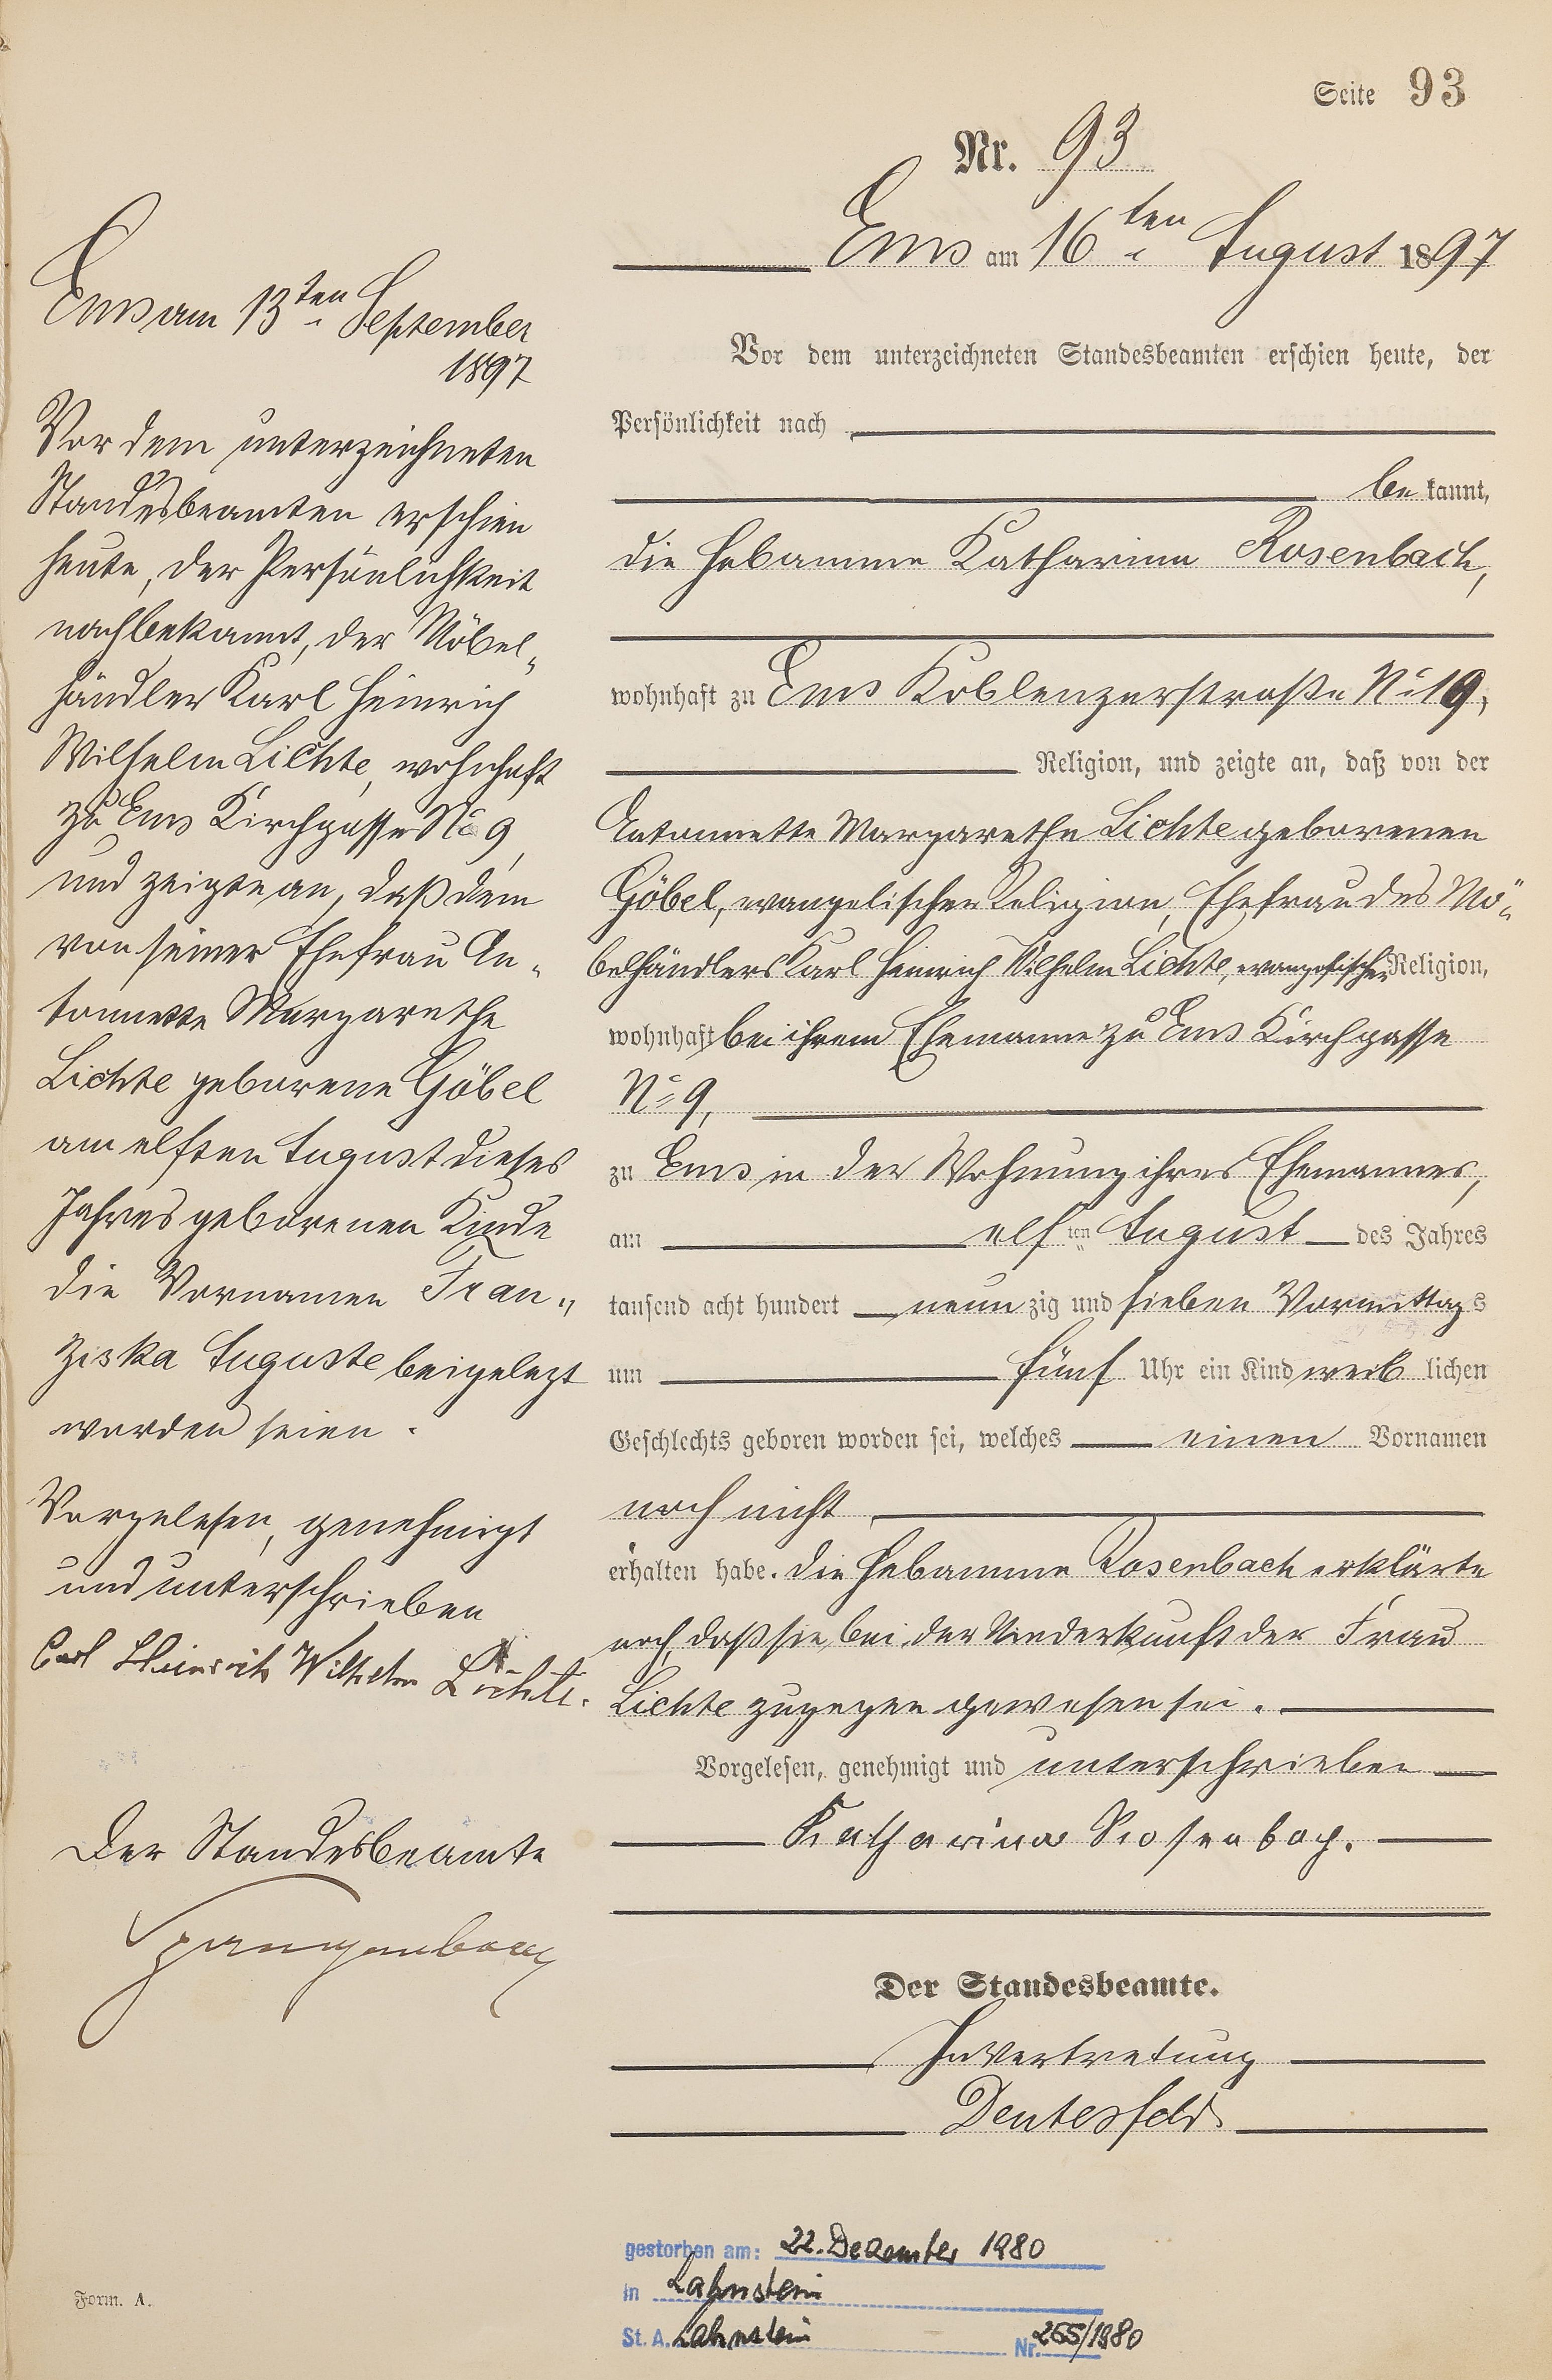 Seite 93
Nr. 93
Ems am 16ten August 1897
Vor dem unterzeichneten Standesbeamten erschien heute, der
Persönlichkeit nach
bekannt,
die Hebamme Katharina Rosenbach,
wohnhaft zu Ems Koblenzerstraße No 19,
Religion, und zeigte an, daß von der
Antonnette Margarethe Lichte geborenen
Göbel, evangelischer Religion, Ehefrau des Mö-
belhändlers Karl Heinrich Wilhelm Lichte, evangelischer Religion,
wohnhaft bei ihrem Ehemanne zu Ems Kirchgasse
No 9,
zu Ems in der Wohnung ihres Ehemannes,
am elften August des Jahres
tausend acht hundert neunzig und sieben Vormittags
um fünf Uhr ein Kind weiblichen
Geschlechts geboren worden sei, welches einen Vornamen
noch nicht
erhalten habe. Die Hebamme Rosenbach erklärte
noch, daß sie bei der Niederkunft der Frau
Lichte zugegen gewesen sei.
Vorgelesen, genehmigt und unterschrieben
Katharina Rosenbach.
Der Standesbeamte.
In Vertretung
Deutesfeld
Ems am 13ten September
1897
Vor dem unterzeichneten
Standesbeamten erschien
heute, der Persönlichkeit
nach bekannt, der Möbel-
händler Karl Heinrich
Wilhelm Lichte, wohnhaft
zu Ems Kirchgasse No 9,
und zeigte an, daß dem
von seiner Ehefrau An-
tonnette Margarethe
Lichte geborene Göbel
am elften August dieses
Jahres geborenen Kinde
die Vornamen Fran-
ziska Auguste beigelegt
worden seien.
Vorgelesen, genehmigt
und unterschrieben
Carl Heinrich Wilhelm Lichte.
Der Standesbeamte
Spangenberg
gestorben am: 22. Dezember 1980
in Lahnstein
St. A. Lahnstein Nr. 265/1980
Form. A.